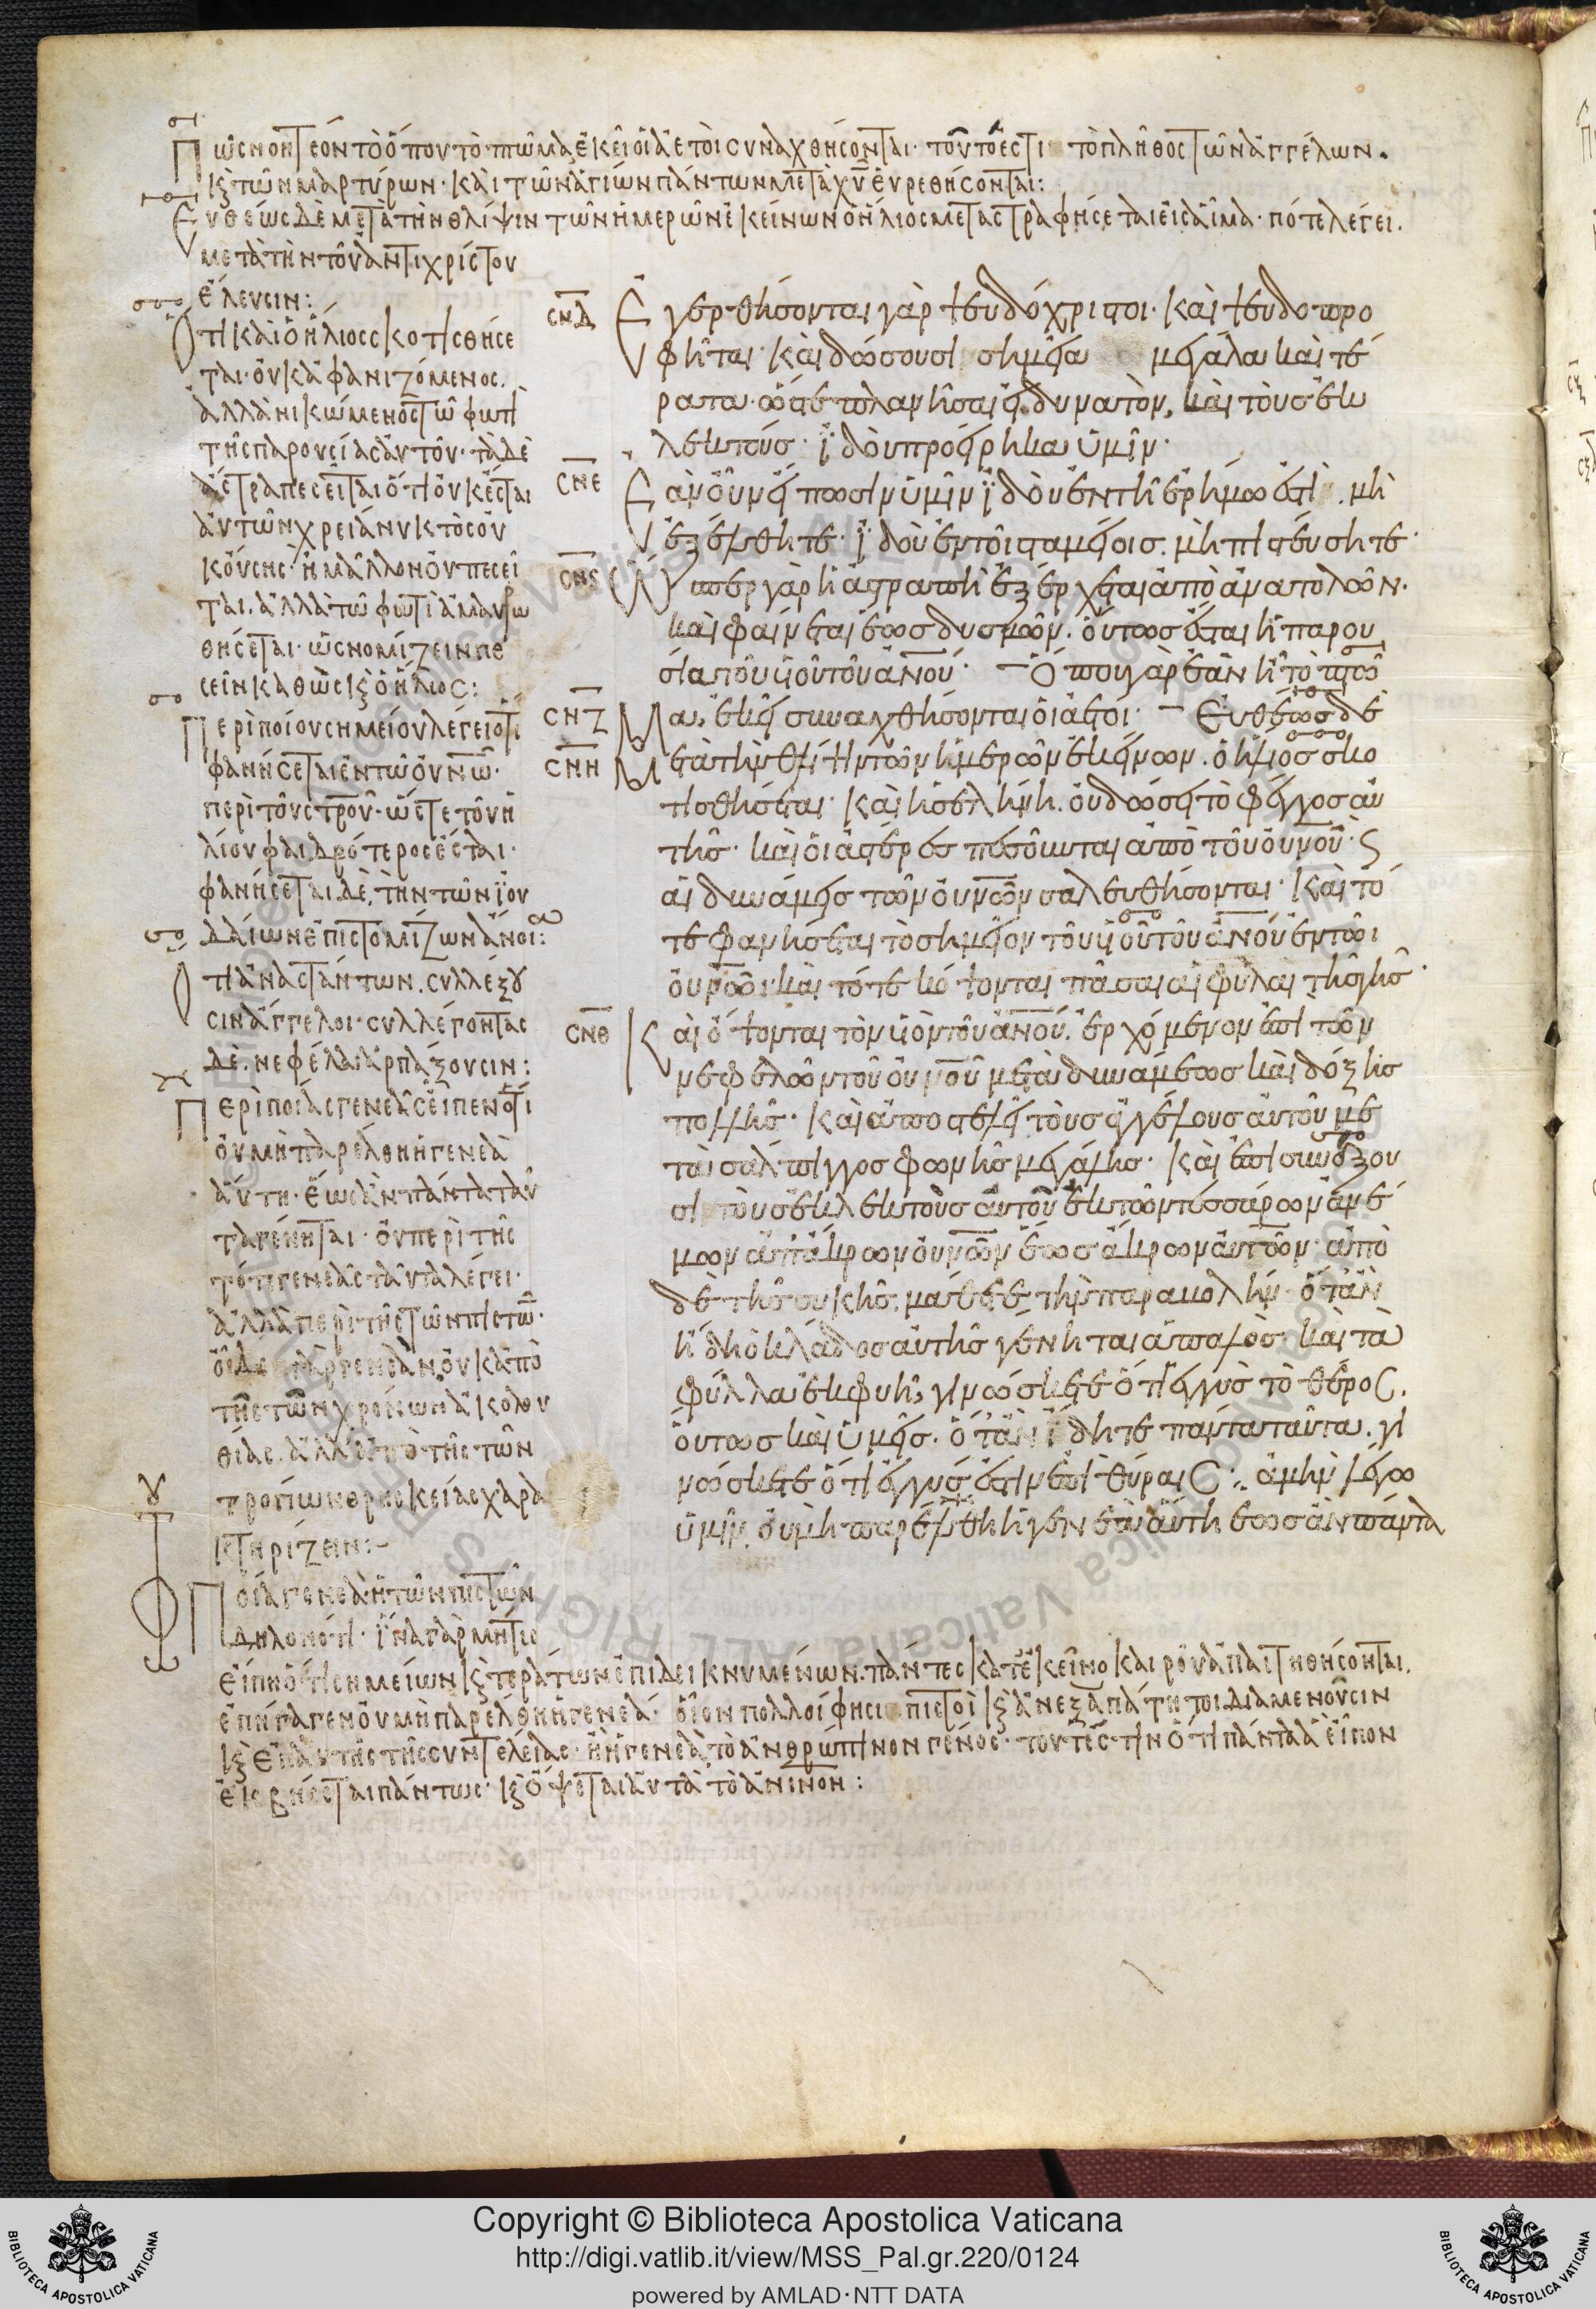 Πῶς νοητέον τὸ ὅπου τὸ πτῶμα ἐκεῖ οἱ ἀετοὶ συναχθήσονται· τουτέστι τὸ πλῆθος τῶν ἀγγέλων.
κ̀ τῶν μαρτύρων· καὶ τῶν ἁγίων πάντων μετὰ χ̅υ̅ εὑρεθήσονται:
Εὐθέως δὲ μετὰ τὴν θλίψιν τῶν ἡμερῶν ἐκείνων ὁ ἥλιος μεταστραφήσεται εἰς αἷμα· πότε λέγει.
μετὰ τὴν τοῦ ἀντιχρίστου
ἔλευσιν:
Ὅτι καὶ ὁ ἥλιος σκοτισθήσε
ται· οὐκ ἀφανιζόμενος.
ἀλλὰ νικώμενος τῶ φωτὶ
τῆς παρουσίας αὐτοῦ· τὰ δὲ
ἄστρα πεσεῖται ὅτι οὐκ ἔσται
αὐτῶν χρεία νυκτὸς οὐ
κούσης· ἢ μᾶλλον οὐ πεσεῖ
ται. ἀλλὰ τῶ φωτὶ ἀμαυρω
θήσεται· ὡς νομίζειν πε
σεῖν καθὼς κ̀ ὁ ἥλιος:
Περὶ ποίου σημείου λέγει ὅτι
φανήσεται ἐν τῶ ο̅υ̅ν̅ω̅·
περὶ τοῦ σ̅τ̅ρ̅ο̅υ̅· ὥστε τοῦ ἡ
λίου φαιδρότερος ἔσται·
φανήσεται δὲ, τὴν τῶν ἰου
δαίων ἐπιστομίζων ἄνοιαν:
Ὅτι ἀναστάντων. συλλέξου
σιν ἄγγελοι· συλλέγοντας
δὲ. νεφέλαι ἁρπάξουσιν:
Περὶ ποίας γενεᾶς εἶπεν ὅτι
οὐ μὴ παρέλθη ἡ γενεὰ
αὕτη· ἕως ἂν πάντα ταῦ
τα γένηται· οὐ περὶ τῆς
τότε γενεᾶς ταῦτα λέγει·
ἀλλὰ περὶ τῆς τῶν πιστῶν·
οἶδε γὰρ γενεὰν οὐκ ἀπὸ
τῆς τῶν χρόνων ἀκολου
θίας. ἀλλ' ἀπὸ τῆς τῶν
τρόπων θρησκείας χαρα
κτηρίζειν:
Ποία γενεὰ· ἡ τῶν πιστῶν
δηλονότι· ἵνα γὰρ μή τις
εἴπη ὅτι σημείων κ̀ τεράτων ἐπιδεικνυμένων. πάντες κατ' ἐκεῖνο καιροῦ ἀπατηθήσονται.
ἐπήγαγεν οὐ μὴ παρέλθη ἡ γενεά· οἷον πολλοί φησι πιστοὶ κ̀ ἀνεξαπάτητοι διαμενοῦσιν
κ̀ ἐπ' αὐτῆς τῆς συντελείας· ἢ ἡ γενεὰ, τὸ ἀνθρώπινον γένος· τουτέστιν ὅτι πάντα ἃ εἶπον
ἐκβήσεται πάντως· κ̀ ὄψεται αὐτὰ τὸ ἀ̅ν̅ι̅ν̅ο̅ν̅:
ϹΝΔ Ἐγερθήσονται γὰρ ψευδόχριστοι· καὶ ψευδοπρο
φῆται· καὶ δώσουσι σημεῖα μεγάλα καὶ τέ
ρατα· ὥστε πλανῆσαι εἰ δυνατὸν, καὶ τοὺς ἐκ
λεκτούς· ἰδοὺ προείρηκα ὑμῖν·
ϹΝΕ Ἐὰν οὖν εἴπωσιν ὑμῖν ἰδοὺ ἐν τῆ ἐρήμω ἐστὶ. μὴ
ἐξέλθητε· ἰδοὺ ἐν τοῖς ταμείοις. μὴ πιστεύσητε·
ϹΝϚ Ὥσπερ γὰρ ἡ ἀστραπὴ ἐξέρχεται ἀπὸ ἀνατολῶν·
καὶ φαίνεται ἕως δυσμῶν. οὕτως ἔσται ἡ παρου
σία τοῦ υ̅ι̅οῦ τοῦ α̅ν̅ο̅υ̅· Ὅπου γὰρ ἐὰν ἦ τὸ πτῶ
ϹΝΖ Μα, ἐκεῖ συναχθήσονται οἱ ἀετοί· Εὐθέως δὲ
ϹΝΗ Μετὰ τὴν θλίψιν τῶν ἡμερῶν ἐκείνων. ὁ ἥλιος σκο
τισθήσεται· καὶ ἡ σελήνη. οὐ δώσει τὸ φέγγος αὐ
τῆς· καὶ οἱ ἀστέρες πεσοῦνται ἀπὸ τοῦ ο̅υ̅ν̅ο̅ῦ̅· κ̀
αἱ δυνάμεις τῶν ο̅υ̅ν̅ῶ̅ν̅ σαλευθήσονται· Καὶ τό
τε φανήσεται τὸ σημεῖον τοῦ υ̅ι̅οῦ τοῦ α̅ν̅ο̅υ̅ ἐν τῶι
ο̅υ̅ν̅ῶ̅ι̅· καὶ τότε κόψονται πᾶσαι αἱ φυλαὶ τῆς γῆς·
ϹΝΘ Καὶ ὄψονται τὸν υ̅ι̅ὸν τοῦ α̅ν̅ο̅υ̅. ἐρχόμενον ἐπὶ τῶν
νεφελῶν τοῦ ο̅υ̅ν̅ο̅ῦ̅ μετὰ δυνάμεως καὶ δόξης
πολλῆς· Καὶ ἀποστελεῖ τοὺς ἀγγέλους αὐτοῦ με
τὰ σάλπιγγος φωνῆς μεγάλης· Καὶ ἐπισυνάξου
σι τοὺς ἐκλεκτοὺς αὐτοῦ ἐκ τῶν τεσσάρων ἀνέ
μων ἀπ' ἄκρων ο̅υ̅ν̅ῶ̅ν̅ ἕως ἄκρων αὐτῶν· ἀπὸ
δὲ τῆς συκῆς. μάθετε τὴν παραβολήν· ὅταν
ἤδη ὁ κλάδος αὐτῆς γένηται ἁπαλὸς· καὶ τὰ
φύλλα ἐκφυῆ, γινώσκετε ὅτι ἐγγὺς τὸ θέρος.
οὕτως καὶ ὑμεῖς. ὅταν ἴδητε πάντα ταῦτα. γι
νώσκετε ὅτι ἐγγύς ἐστιν ἐπὶ θύραις: ἀμὴν λέγω
ὑμῖν. οὐ μὴ παρέλθη ἡ γενεὰ αὕτη ἕως ἂν πάντα
Copyright © Biblioteca Apostolica Vaticana
http://digi.vatlib.it/view/MSS_Pal.gr.220/0124
powered by AMLAD·NTT DATA
BIBLIOTECA APOSTOLICA VATICANA
BIBLIOTECA APOSTOLICA VATICANA